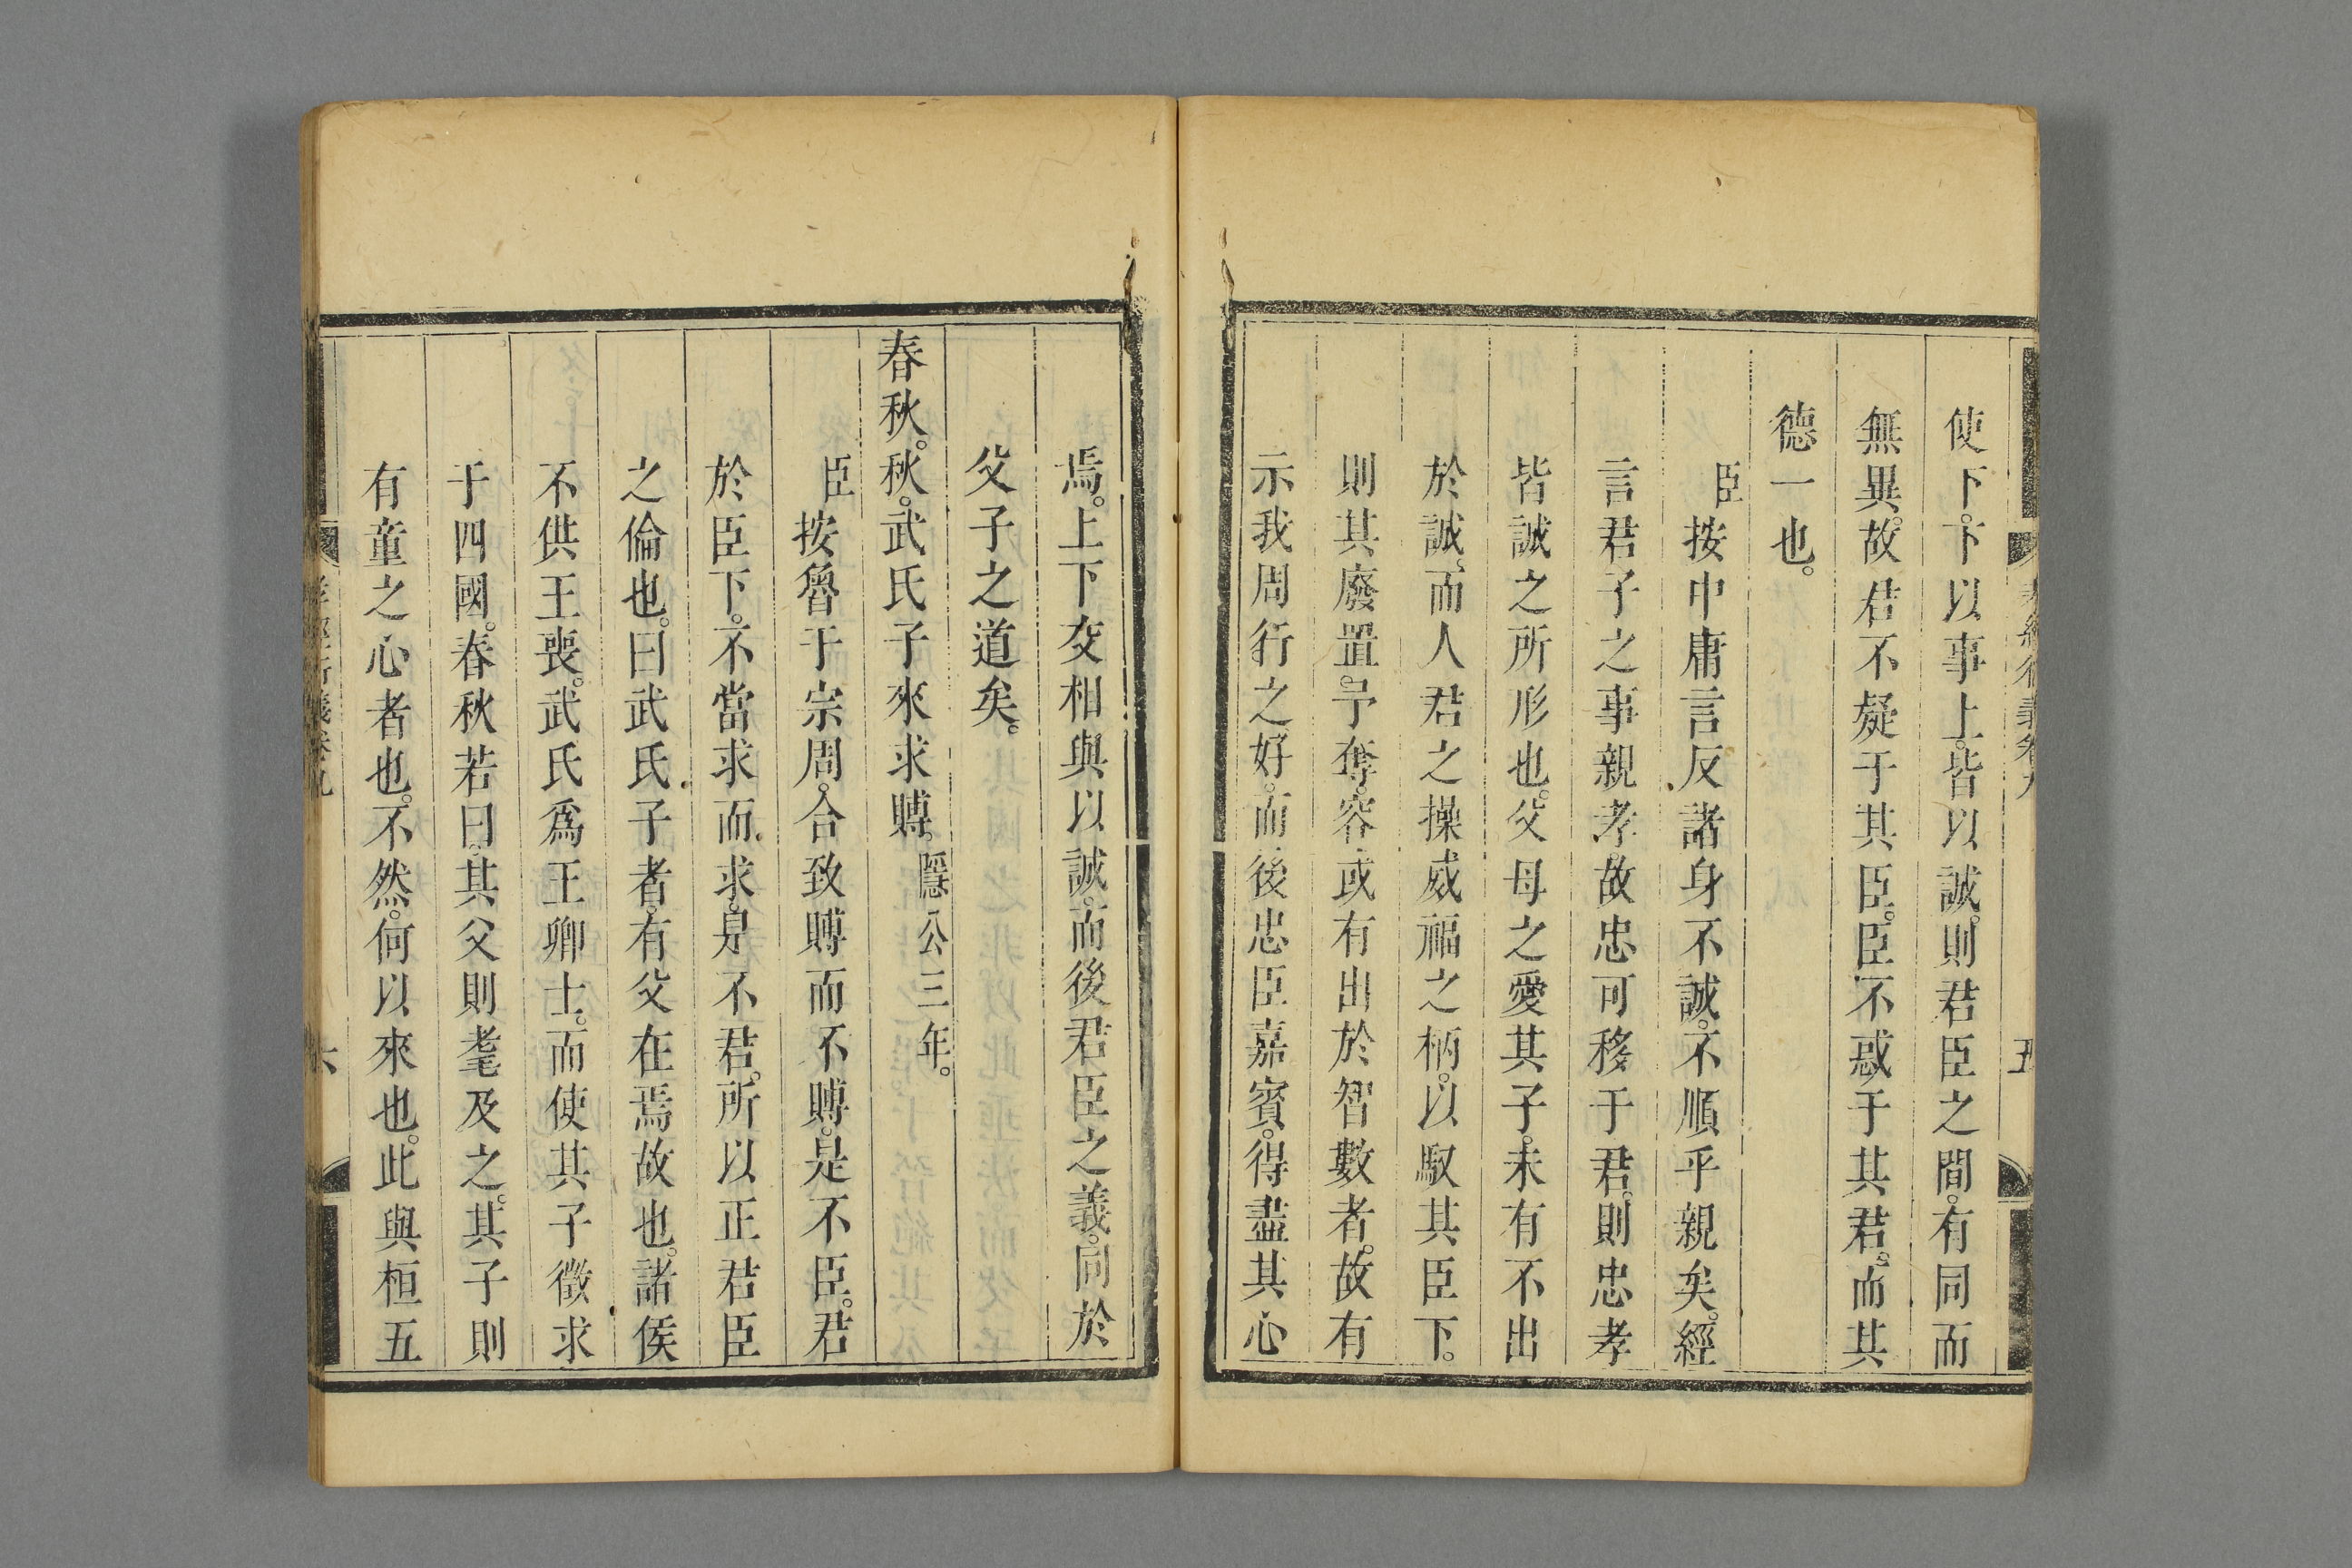 使下。下以事上。皆以誠。則君臣之間。有同而
無異。故君不疑于其臣。臣不惑于其君。而其
德一也。
臣按中庸言反諸身不誠。不順乎親矣。經
言君子之事親孝。故忠可移于君。則忠孝
皆誠之所形也。父母之愛其子。未有不出
於誠。而人君之操威福之柄。以馭其臣下。
則其廢置。予奪。容或有出於智數者。故有
示我周行之好。而後忠臣嘉賓。得盡其心
焉。上下交相與以誠。而後君臣之義。同於
父子之道矣。
春秋。秋。武氏子來求賻。隱公三年。
臣按魯于宗周。合致賻而不賻。是不臣。君
於臣下。不當求而求。是不君。所以正君臣
之倫也。曰武氏子者。有父在焉故也。諸侯
不供王喪。武氏爲王卿士。而使其子徵求
于四國。春秋若曰。其父則耄及之。其子則
有童之心者也。不然。何以來也。此與桓五
孝經衍義卷九
六